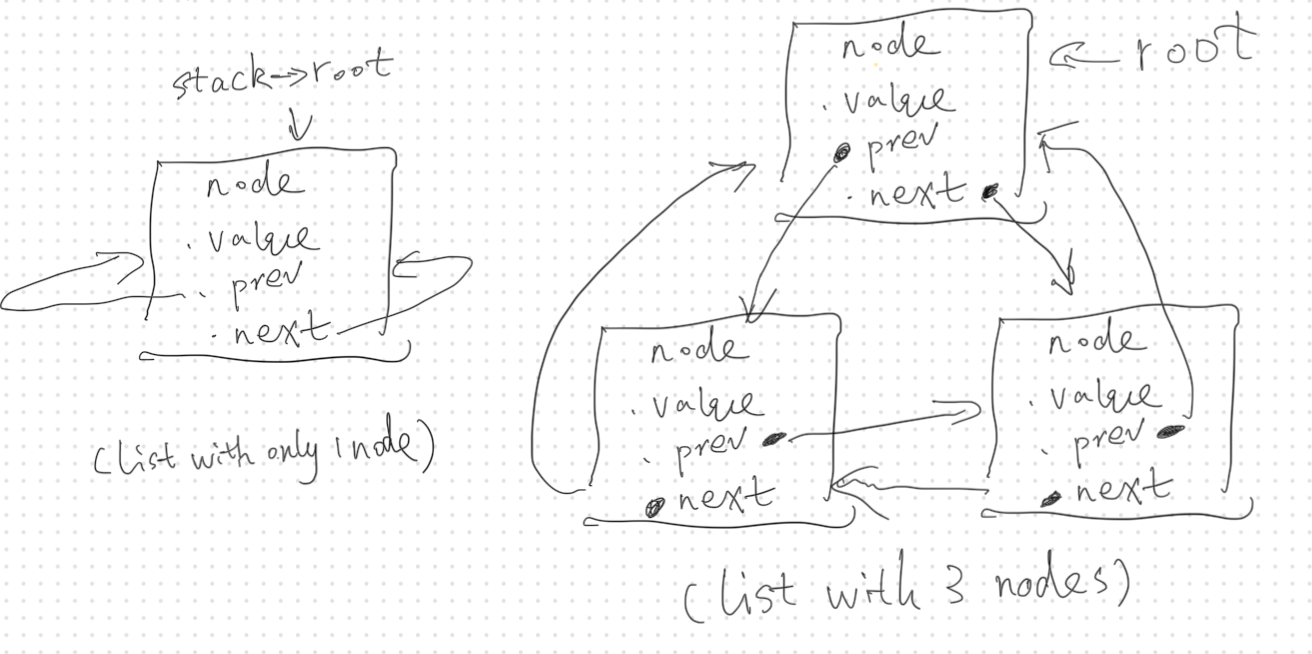 stack→root
node
. value
. prev
. next
(list with only 1 node)
node
← root
. value
prev
. next
node
. value
. prev
next
node
. value
. prev
next
(list with 3 nodes)